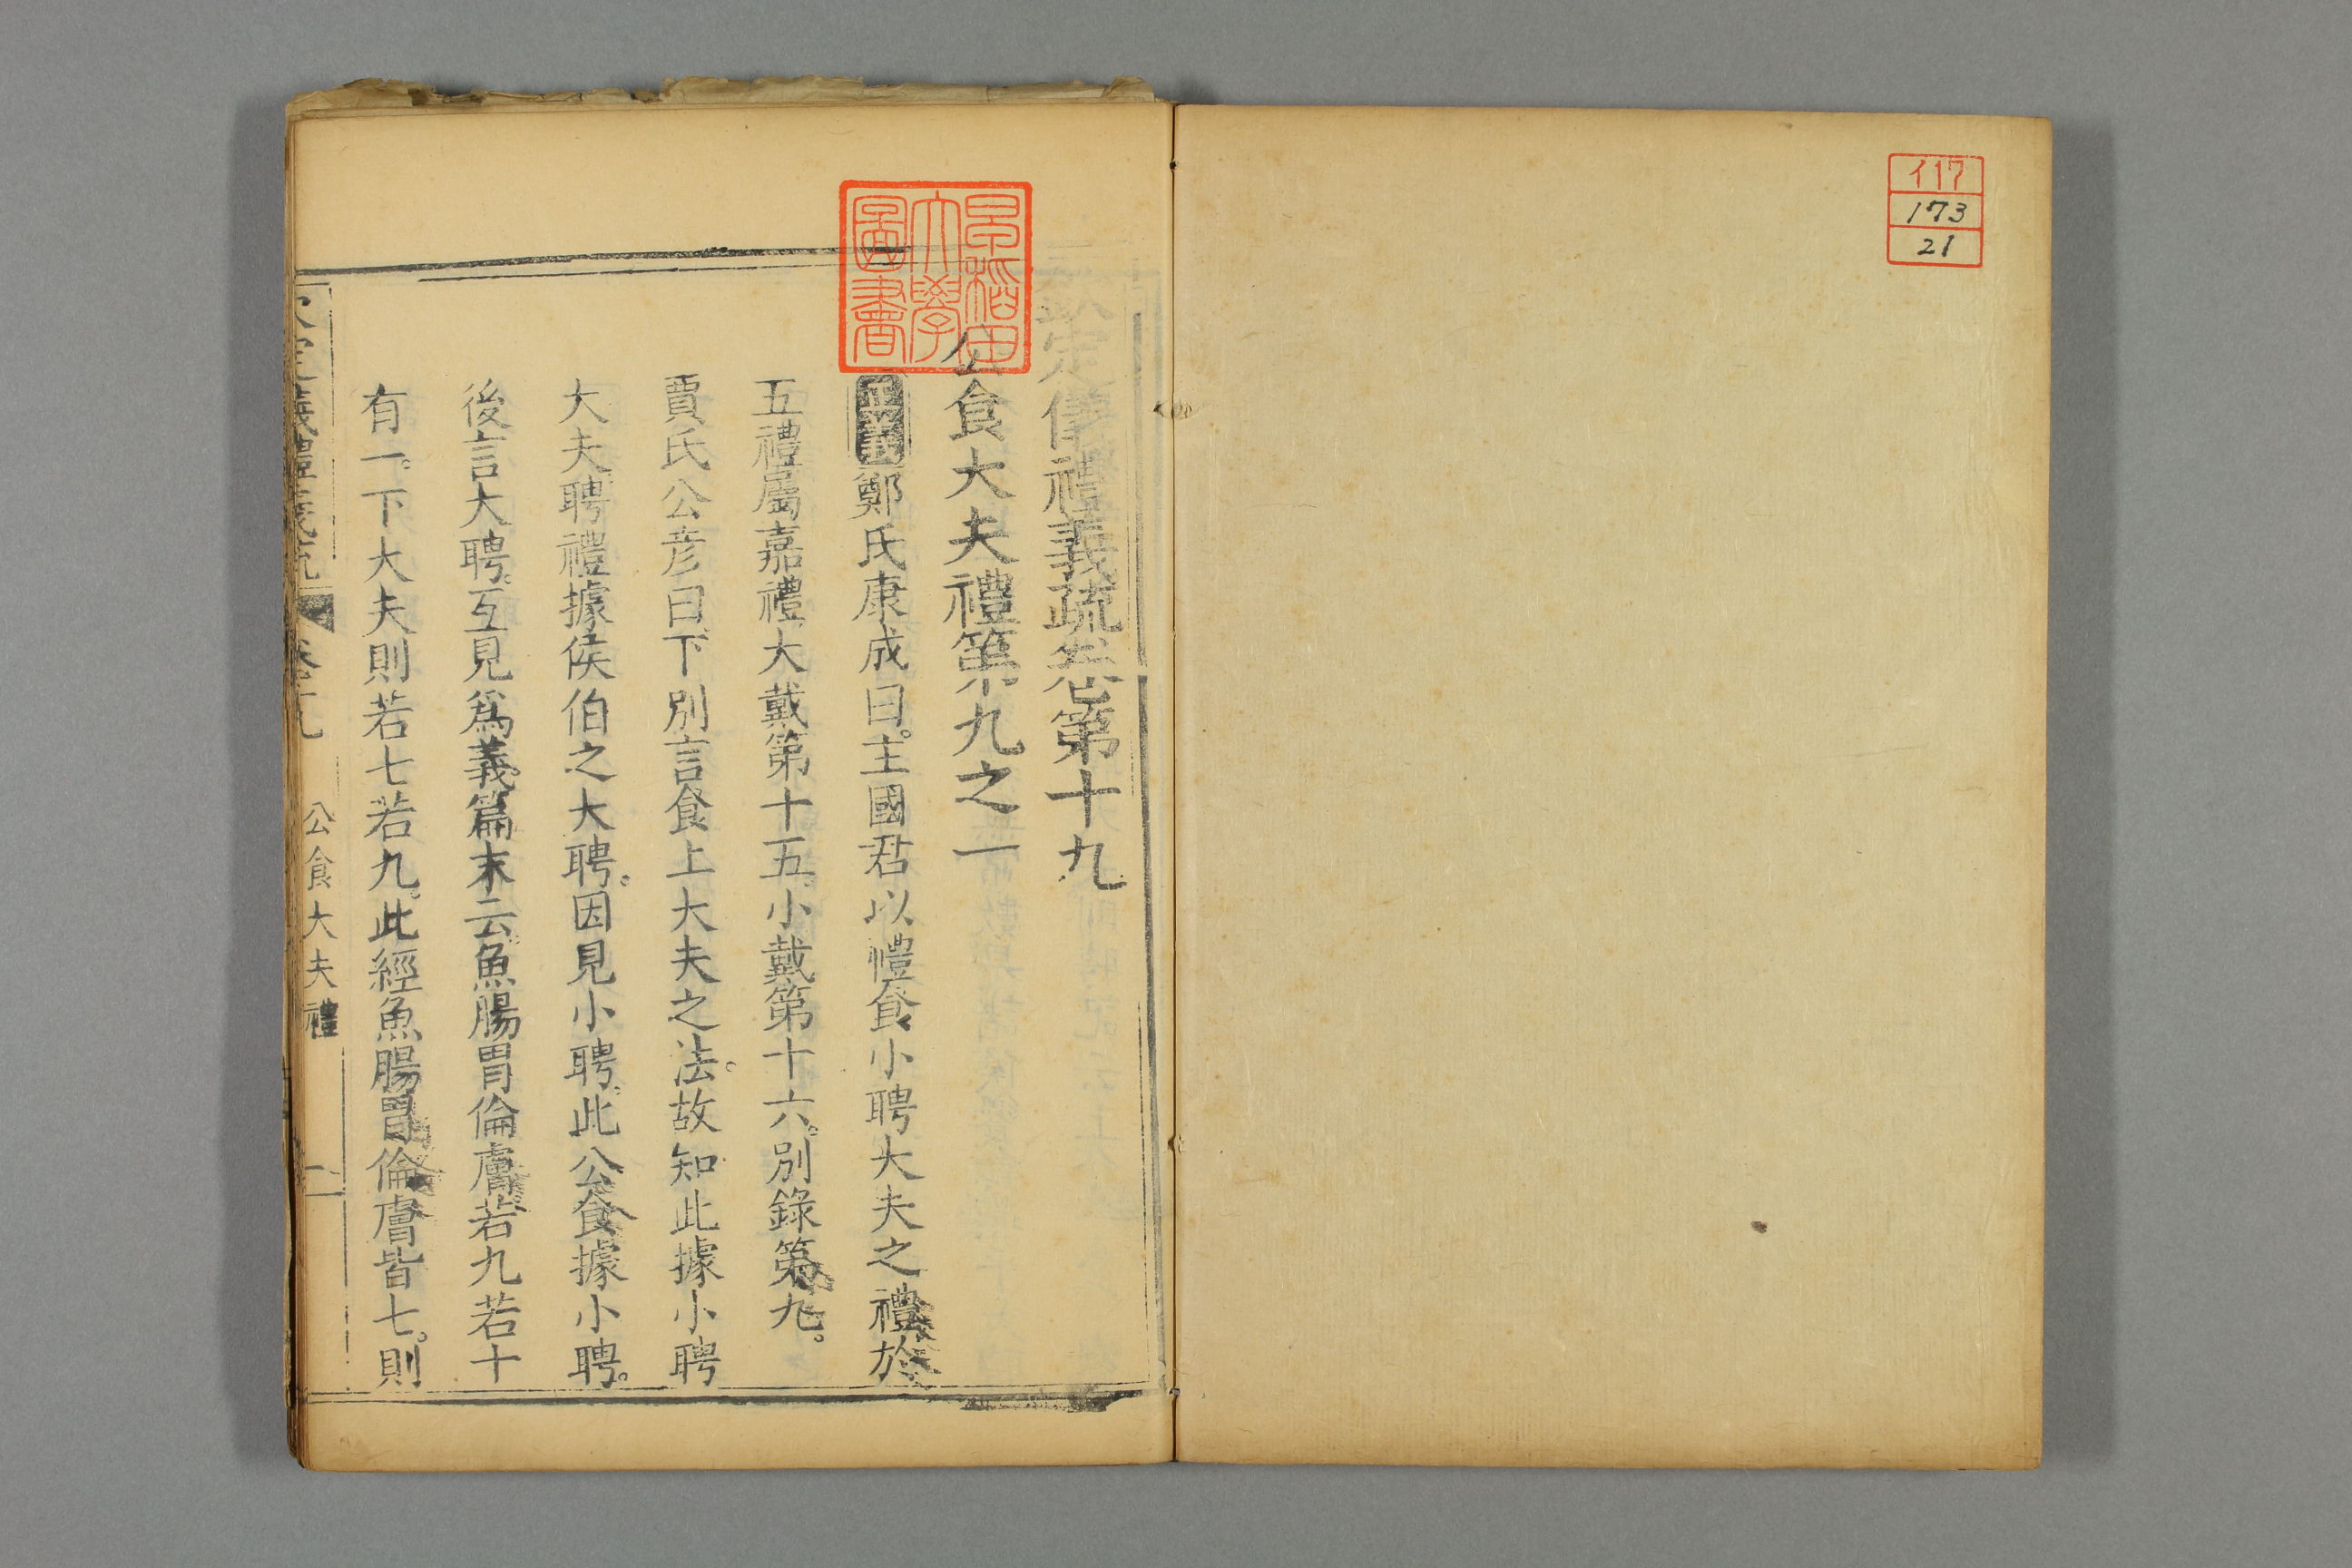 イ17
173
21
欽定儀禮義疏卷第十九
公食大夫禮第九之一
正義鄭氏康成曰。主國君以禮食小聘大夫之禮於
五禮屬嘉禮大戴第十五。小戴第十六。別錄第九。
賈氏公彦曰下別言食上大夫之法。故知此據小聘
大夫聘禮據侯伯之大聘。因見小聘。此公食據小聘。
後言大聘。互見爲義篇末云。魚腸胃倫膚若九若十
有一。下大夫則若七若九。此經魚腸胃倫膚皆七。則
欽定儀禮義疏 卷十九 公食大夫禮 一
早稻田
大學
圖書